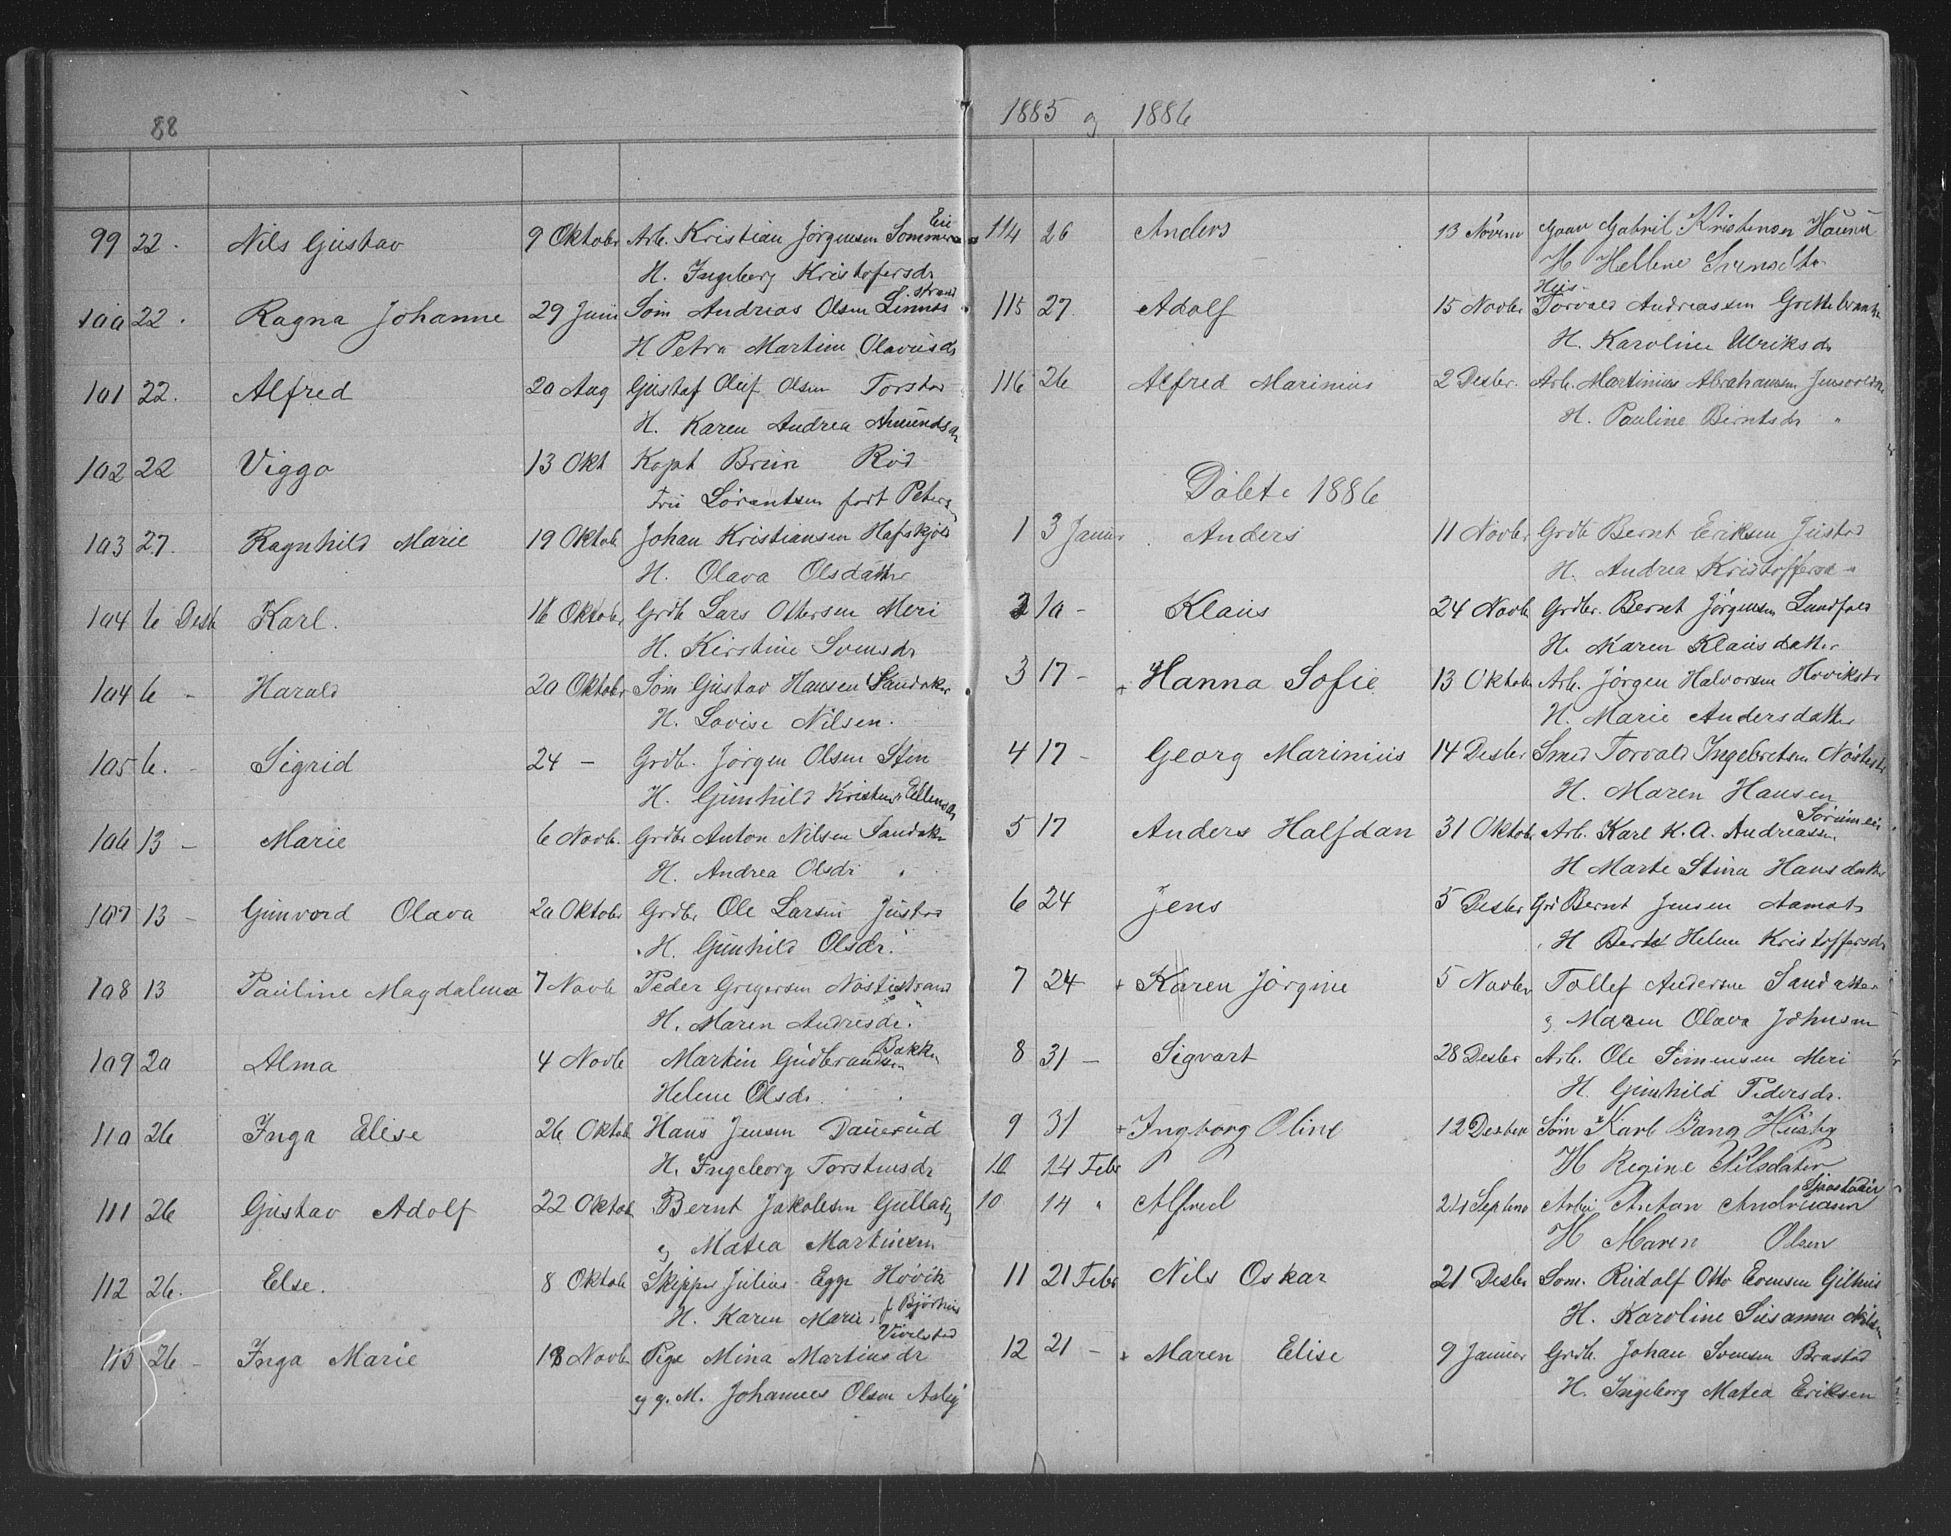 88
99 22. Nils Gustav 9 Oktober Arb. Kristian Jørgensen Sommer Eie
H. Ingeborg Kristofersdr
100 22. Ragna Johanne 29 Juni Søm Andrias Olsen Linnes strand
H Petra Martine Olavusdr
101 22. Alfred 20 Aug Gustaf Oluf Olsen Torstad
H. Karen Andrea Amundsdr
102 22 Viggo 13 Okt Kapt Bruun Rød
Fru Lorantsen født Peters
103 27. Ragnhild Marie 19 Oktob Johan Kristiansen Hafskjold
H. Olava Olsdatter
104 6 Desb Karl. 16 Oktober Grdb Lars Ottersen Meri
H. Kirstine Svensdr
104 6 - Harald 20 Oktober Søm Gustav Hansen Sandaker
H. Lovise Nilsen.
105 6. - Sigrid 24 - Grdb. Jørgen Olsen Sten
H. Gunhild Kristine Ellensdr
106 13 - Marie 6 Novb. Grdbr Anton Nilsen Sandaker
H. Andrea Olsdr
107 13 - Gunvord Olava 20 Oktobr Grdbr Ole Larsen Justad
H. Gunhild Olsdr.
108 13 Pauline Magdalena 7 Novb Peder Gregersen Nøstestrand
H. Maren Andrisdr.
109 20 Alma 4 Novb Martin Gudbrandsen Bakken
Helene Olsdr.
110 26 Inga Elise 26 Oktob Hans Jensen Dauerud
H. Ingeborg Torstensdr
111 26 Gustav Adolf 22 Oktob Bernt Jakobsen Gullaug
og Matea Martinsen
112 26. Else. 8 Oktob Skipper Julius Egge Høvik
H. Karen Marie f Bjørnius
113 26 - Inga Marie 18 Novb Pige Mina Martinsdr Vivelstad
og g. M. Johannes Olsen Aasby
1885 og 1886
114 26 Anders 13 Novem Gaar Gabril Kristensen Haunu
H Hellene Svensdtr
115 27. Adolf 15 Novbr Hus- Torvald Andreassen Grettebranten
H. Karoline Ulriksdr
116 26 Alfred Marinius 2 Desbr. Arb. Martinius Abrahamsen Jensvolden
H. Pauline Berntsdr "
Døbte 1886
1 3 Januar Anders 11 Novbr Grdb Bernt Eriksen Justad
H. Andrea Kristoffersdr
2 10 - Klaus 24 Novb Grdbr. Bernt Jørgensen Lundfald
H. Karen Klausdatter
3 17 - + Hanna Sofie 13 Oktob Arb. Jørgen Halvorsen Hovikstr
H. Marie Andersdatter
4 17 - Georg Marinius 14 Desbr Smed Torvald Ingebretsen Nøstestr
H. Maren Hansen
5 17 Anders Halfdan 31 Oktob Arb. Karl K. A. Andreassen Sørumeie
H Marte Stina Hansdatter
6 24 Jens 5 Desbr Grd Bernt Jensen Aamot
H Berte Helene Kristoffersdr
7 24 + Karen Jørgine 5 Novbr Tollef Andersen Sandaker
og Maren Olava Johnsen
8 31 - Sigvart 28 Desbr Arb. Ole Simensen Meri
H. Gunhild Pedersdr.
9 31 + Ingborg Oline 12 Desber Søm Karl Bang Husby
10 14 Febr H Regine Nilsdatter
10 14 " Alfred 24 Septemb Arbei Anton Andreasen Sjaastadeie
H Maren Olsen
11 21 Febr Nils Oskar 21 Desbr Søm. Rudolf Otto Evensen Gilhus
H. Karoline Susanne Nilsen
12 21 - + Maren Elise 9 Januar Grdb. Johan Svensen Brastad
H. Ingeborg Matea Eriksen